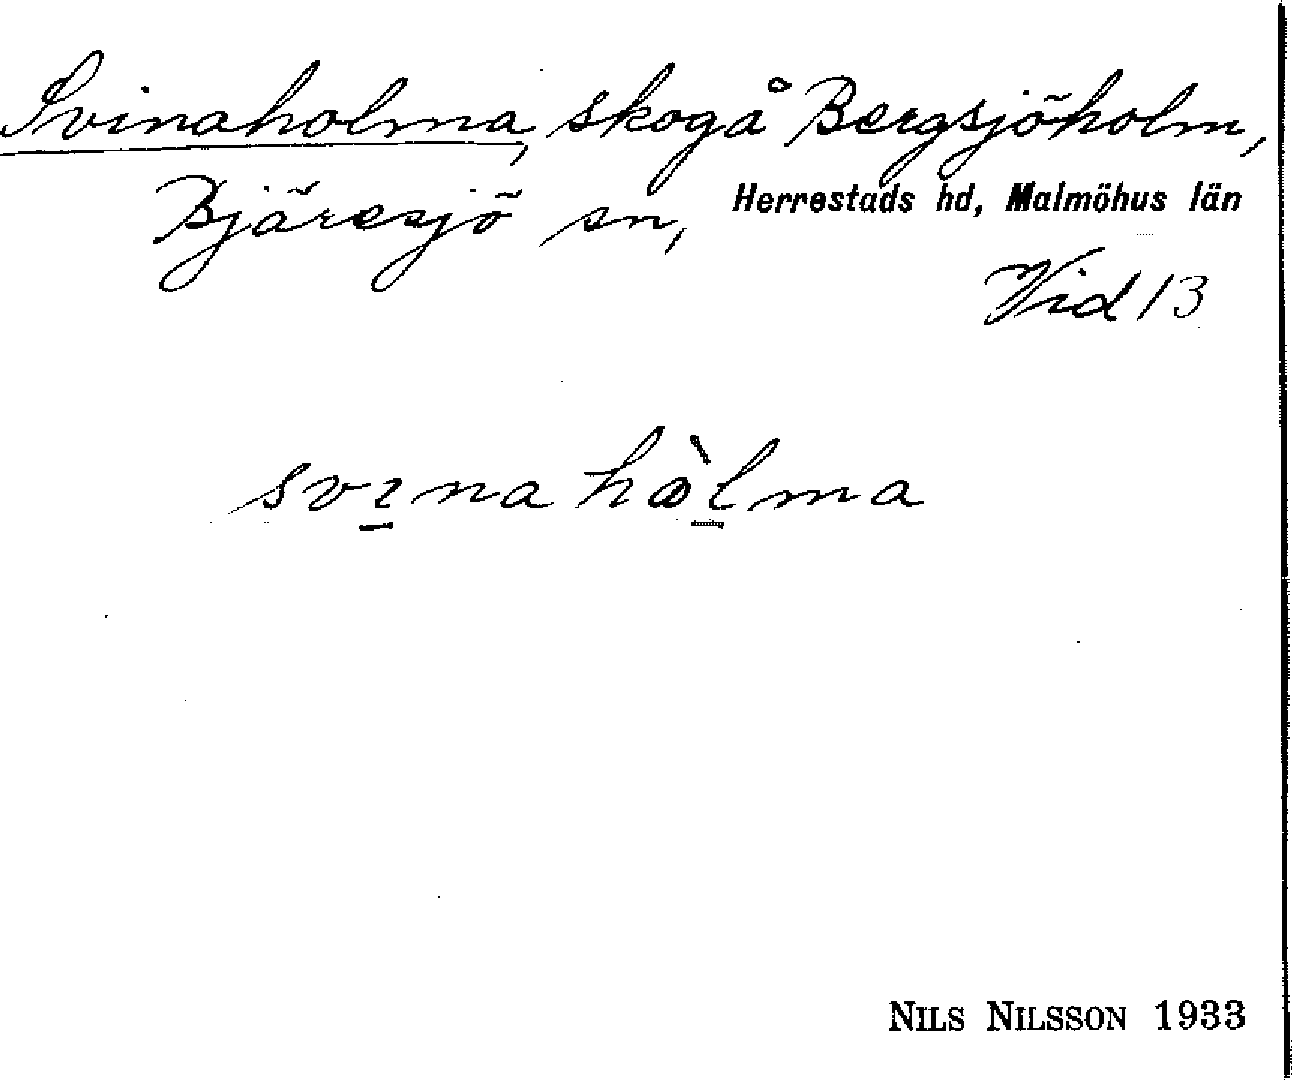 Svinaholma, skog å Bergsjöholm,
Bjäresjö sn, Herrestads hd, Malmöhus län
Vid 13
svɪ̠na hòl̠ma
NILS NILSSON 1933